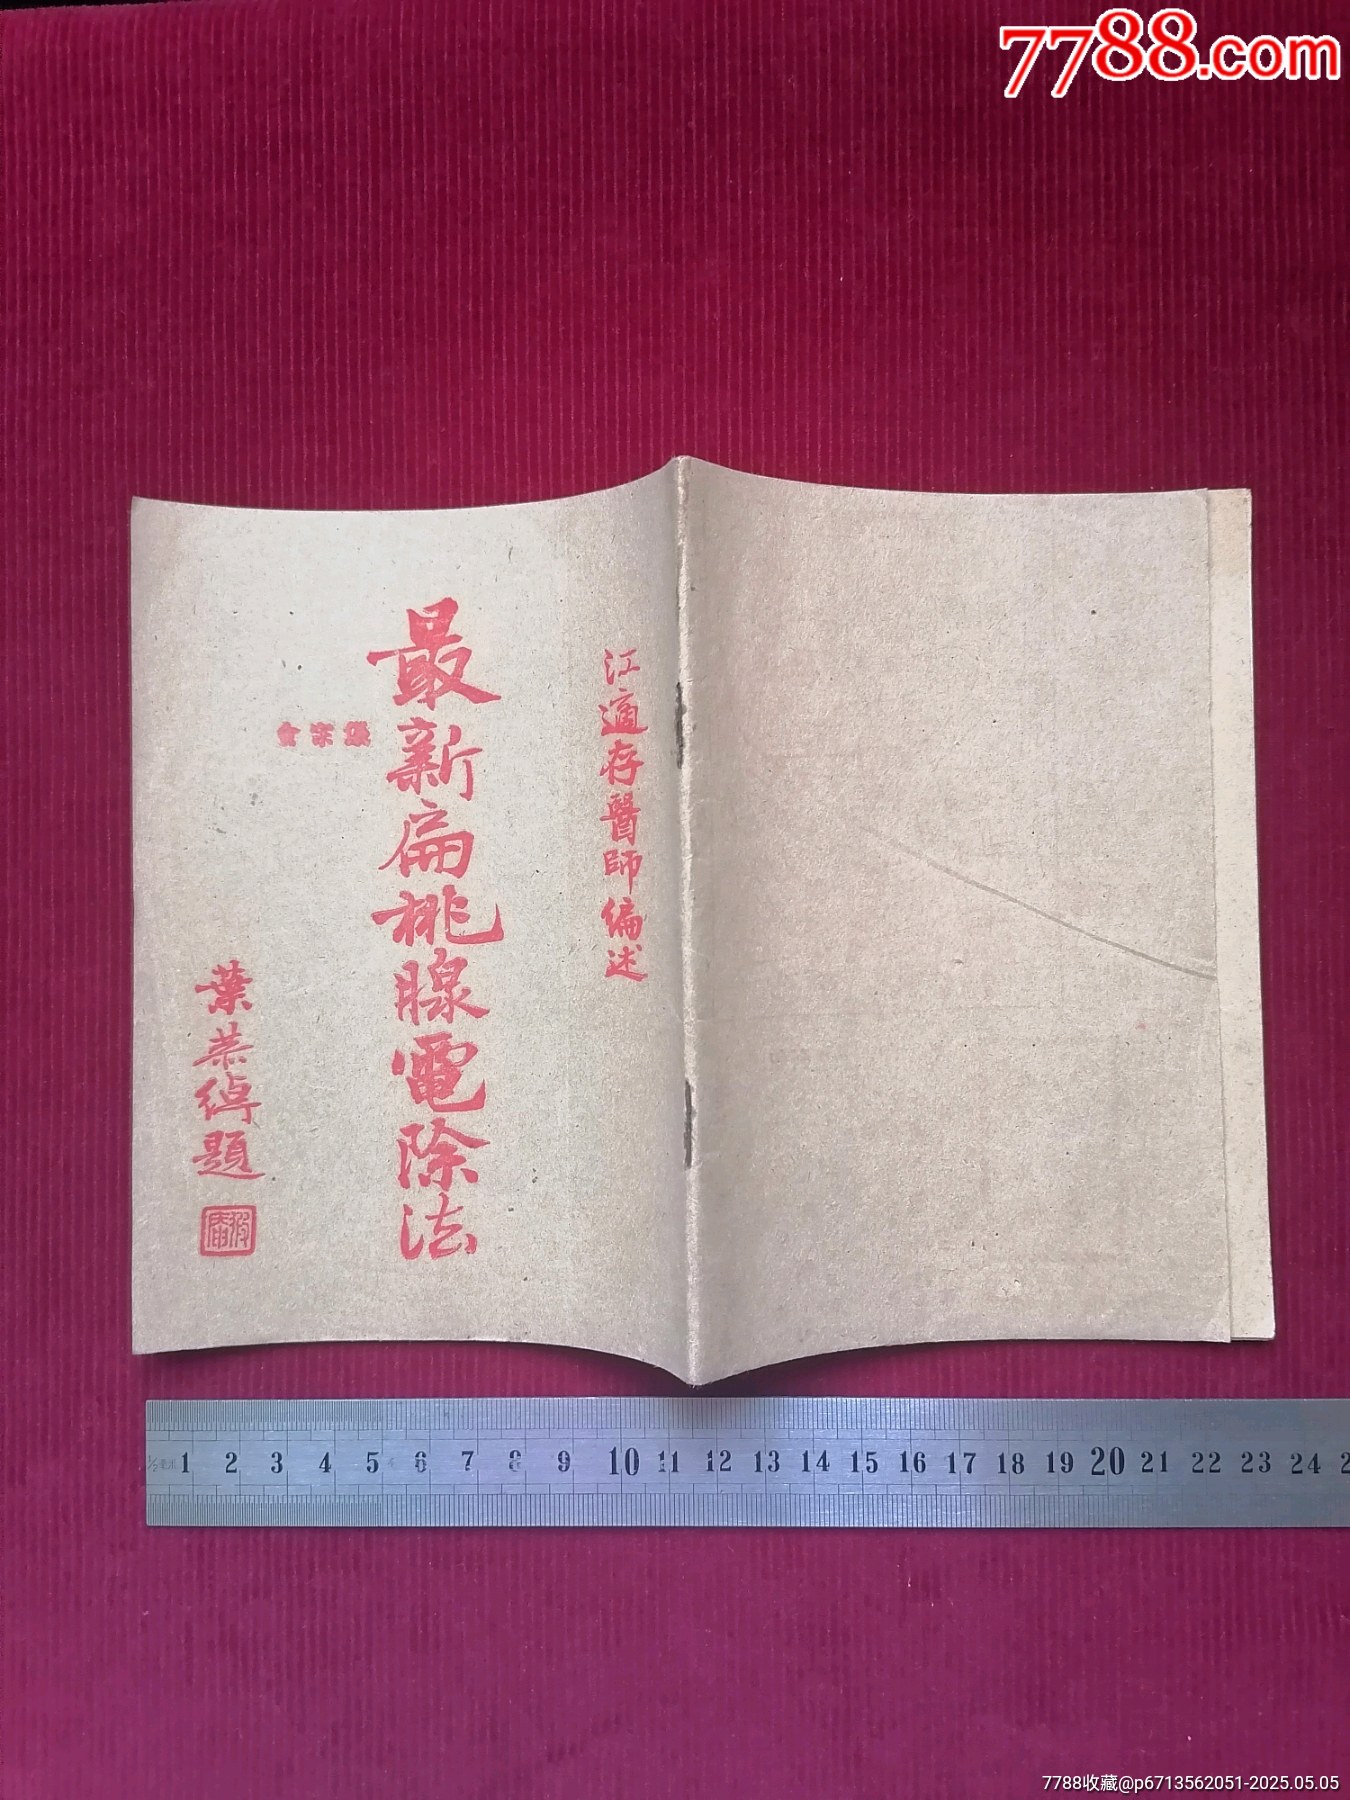 7788.com
江適存醫師編述
最新扁桃腺電除法
葉恭綽題
1 2 3 4 5 6 7 8 9 10 11 12 13 14 15 16 17 18 19 20 21 22 23 24
7788收藏@p6713562051-2025.05.05